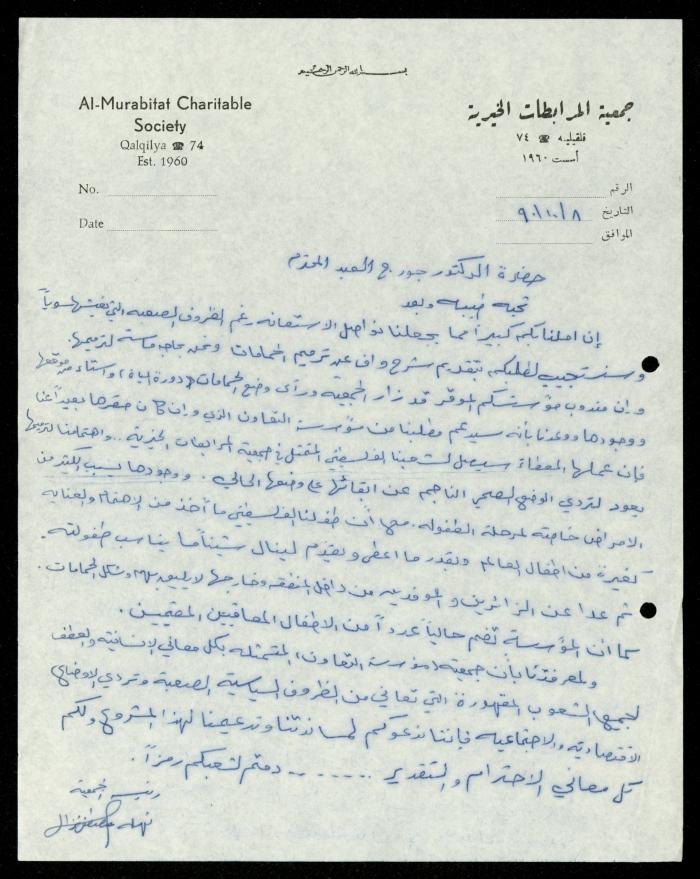 بسم الله الرحمن الرحيم
Al-Murabitat Charitable
Society
Qalqilya ☎ 74
Est. 1960
No.
Date
جمعية المرابطات الخيرية
قلقيليه ☎ ٧٤
أسست ١٩٦٠
الرقم
التاريخ ٩٠/١٠/٨
الموافق
حضرة الدكتور جورج العبد المحترم
تحيه طيبه وبعد
إن املنا بكم كبيراً مما يجعلنا نواصل الاستعانه رغم الظروف الصعبه التي نعيشها سوياً
وسنستجيب لطلبكم بتقديم شرح واف عن ترميم الحمامات ونحن بحاجه ماسة لترميمها.
وان مندوب مؤسستكم الموقر قد زار الجمعيه ورأى وضع الحمامات (دورة المياة) واستاء من موقعها
ووجودها ووعدنا بأنه سيدعم مطلبنا من مؤسسة التعاون الذي وان كان مقرها بعيداً عنا
فإن عملها المعطاء سيصل لشعبنا الفلسطيني الممثل في جمعية المرابطات الخيرية .. واهتمامنا لترميمها
يعود لتردي الوضع الصحي الناجم عن ابقائها على وضعها الحالي . ووجودها يسبب الكثير من
الامراض خاصة لمرحلة الطفوله . منها أن طفلنا الفلسطيني ما أخذ من الاهتمام والعنايه
كغيرة من اطفال العالم ونقدر ما اعطى ونقدم لينال شيئاً ما يناسب طفولته
ثم عدا عن الزائرين والموفدين من داخل المنطقه وخارجها لا يليق بهم وشكل الحمامات .
كما ان المؤسسة تضم حالياً عدداً من الاطفال المعاقين المقيمين .
ولمعرفتنا بأن جمعية (مؤسسة التعاون) المتمثله بكل معاني الإنسانية والعطف
لجميع الشعوب المقهورة التي تعاني من الظروف السياسية الصعبة وتردي الاوضاع
الاقتصادية والاجتماعيه فإننا ندعوكم لمساندتنا وتدعيمنا لهذا المشروع ولكم
كل معاني الاحترام والتقدير ........ دمتم لشعبكم رمزاً .
رئيسة الجمعية